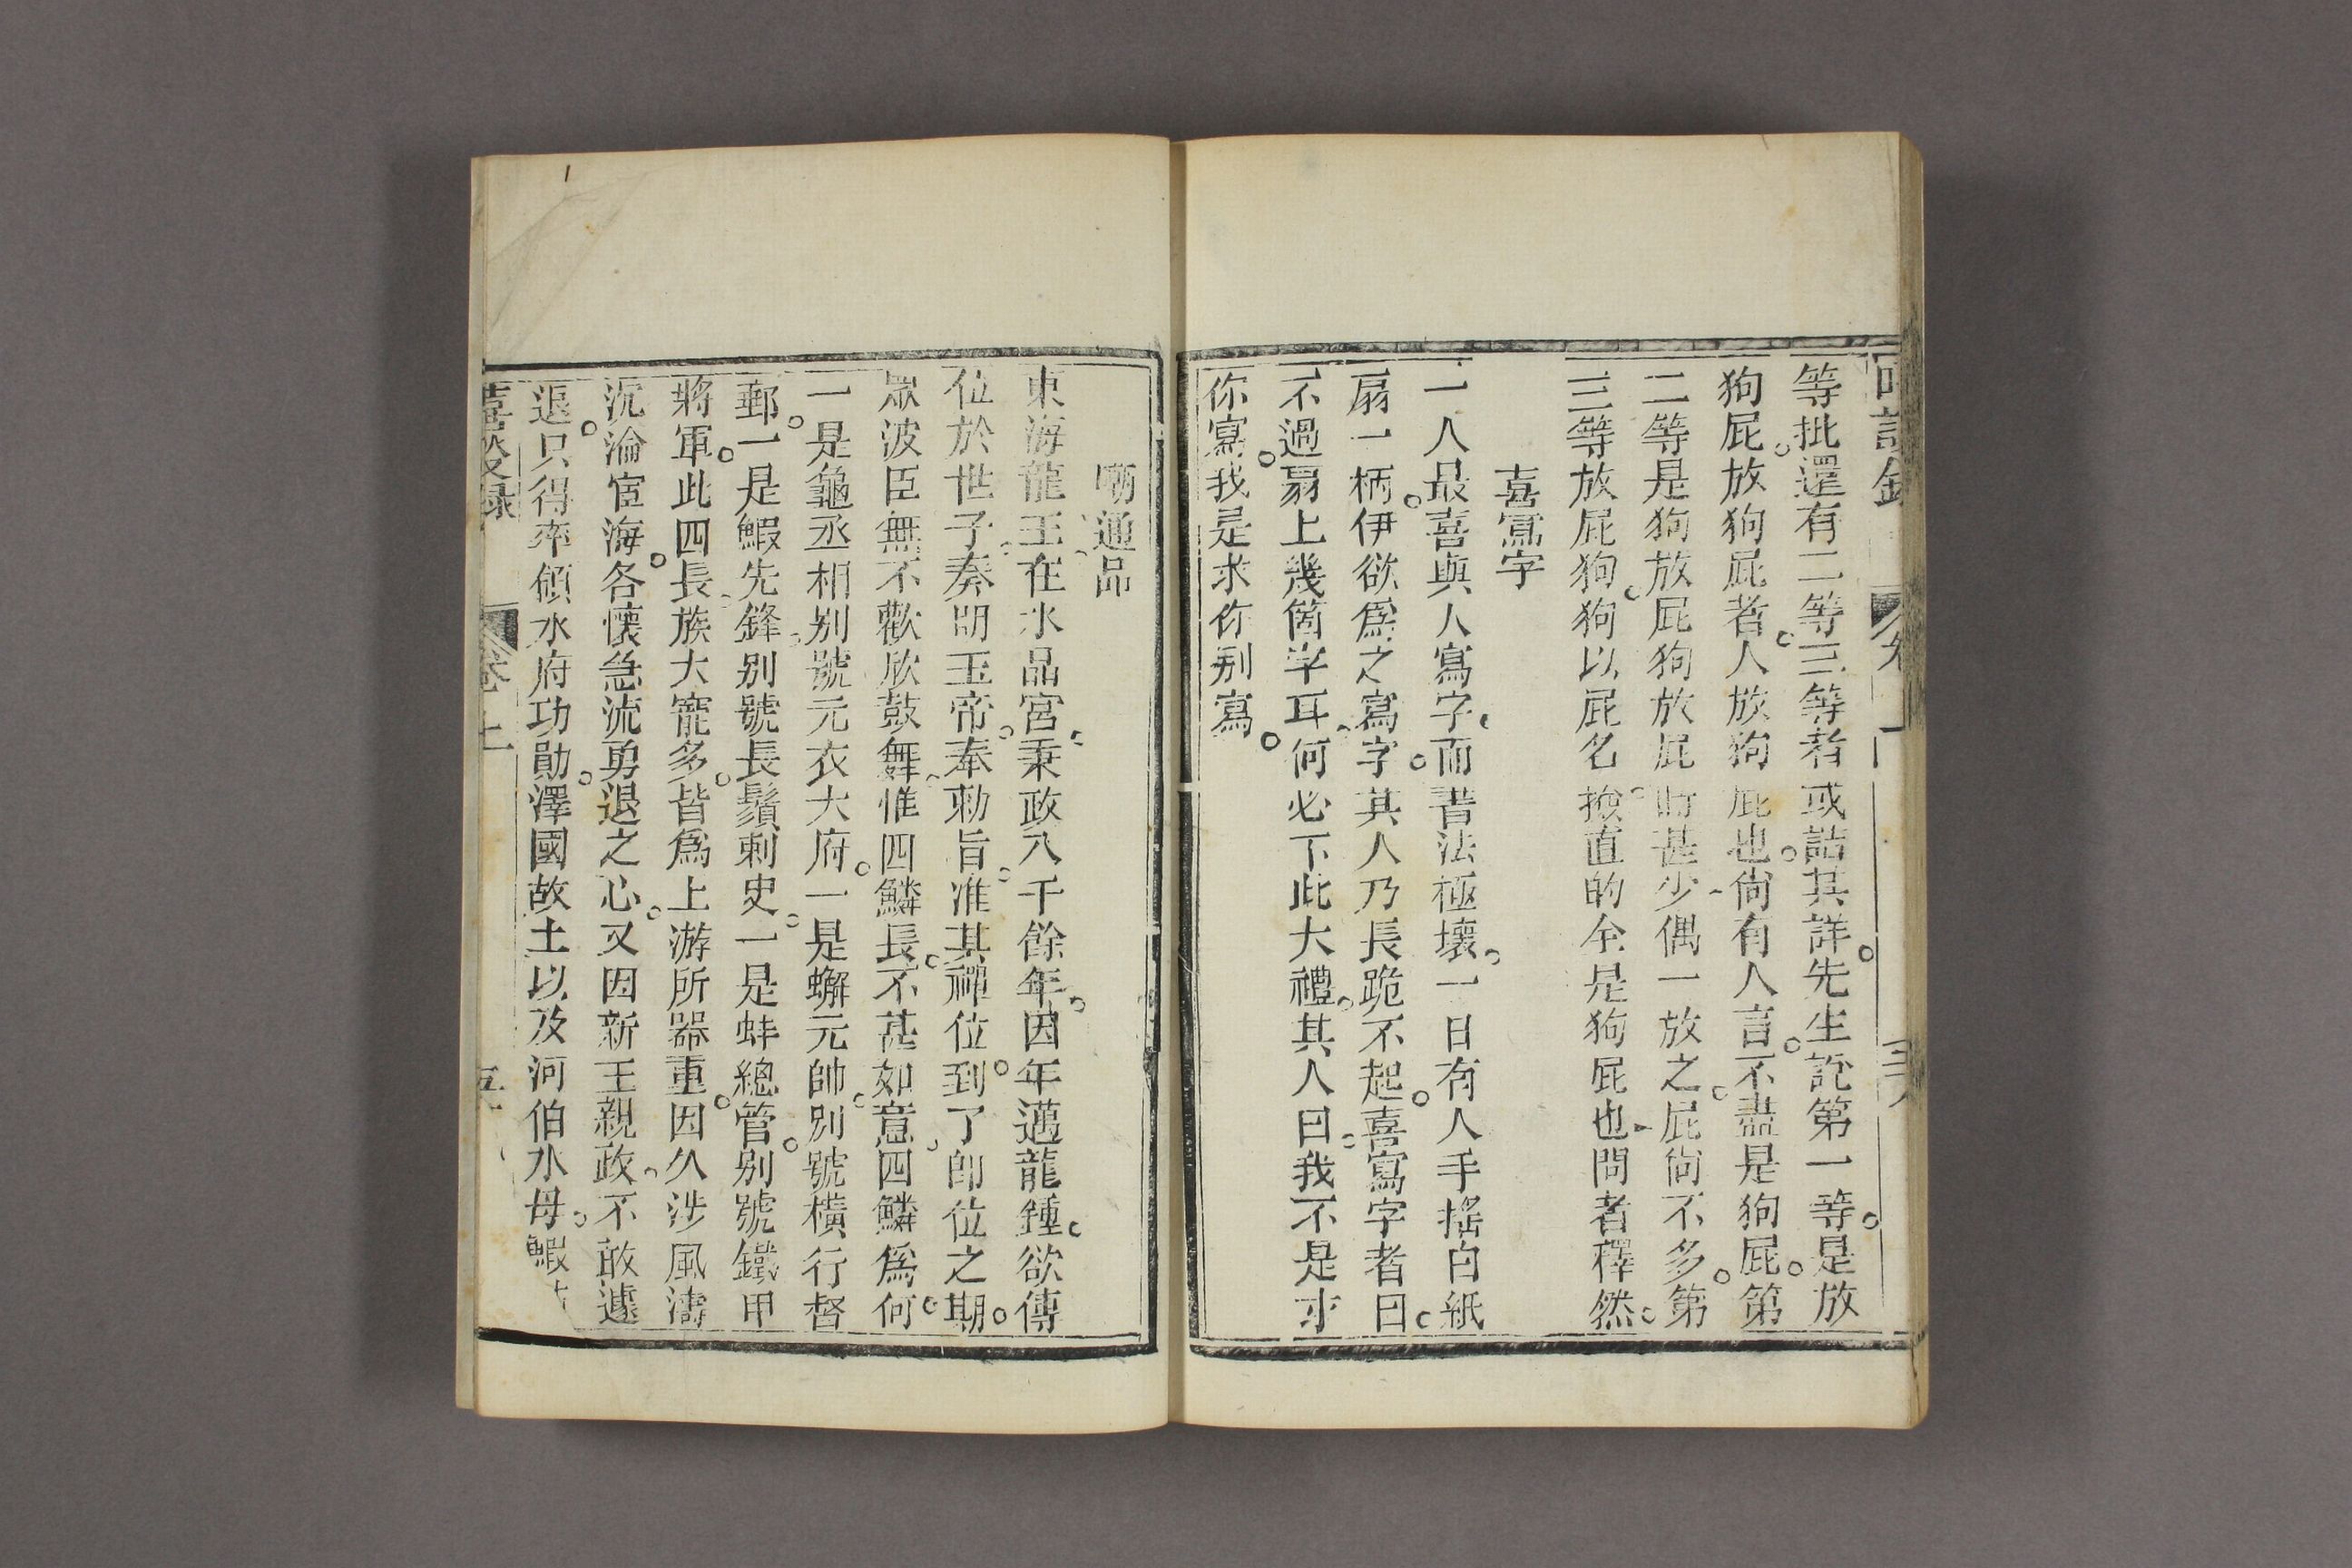 等批還有二等三等者或詰其詳先生說第一等是放
狗屁放狗屁者人放狗屁也尙有人言不盡是狗屁第
二等是狗放屁狗放屁時甚少偶一放之屁尙不多第
三等放屁狗狗以屁名撿直的全是狗屁也問者釋然
喜寫字
一人最喜與人寫字而書法極壞一日有人手搖白紙
扇一柄伊欲爲之寫字其人乃長跪不起喜寫字者曰
不過扇上幾箇字耳何必下此大禮其人曰我不是求
你寫我是求你别寫
嘲通品
東海龍王在水晶宮秉政八千餘年因年邁龍鍾欲傳
位於世子奏明玉帝奉勅旨准其禪位到了卽位之期
眾波臣無不歡欣鼓舞惟四鱗長不甚如意四鱗爲何
一是龜丞相别號元衣大府一是蠏元帥别號橫行督
郵一是鰕先鋒别號長鬚刺史一是蚌總管别號鐵甲
將軍此四長族大寵多皆爲上游所器重因久涉風濤
沉淪宦海各懷急流勇退之心又因新王親政不敢遽
退只得率領水府功勛澤國故土以及河伯水母鰕
卷上